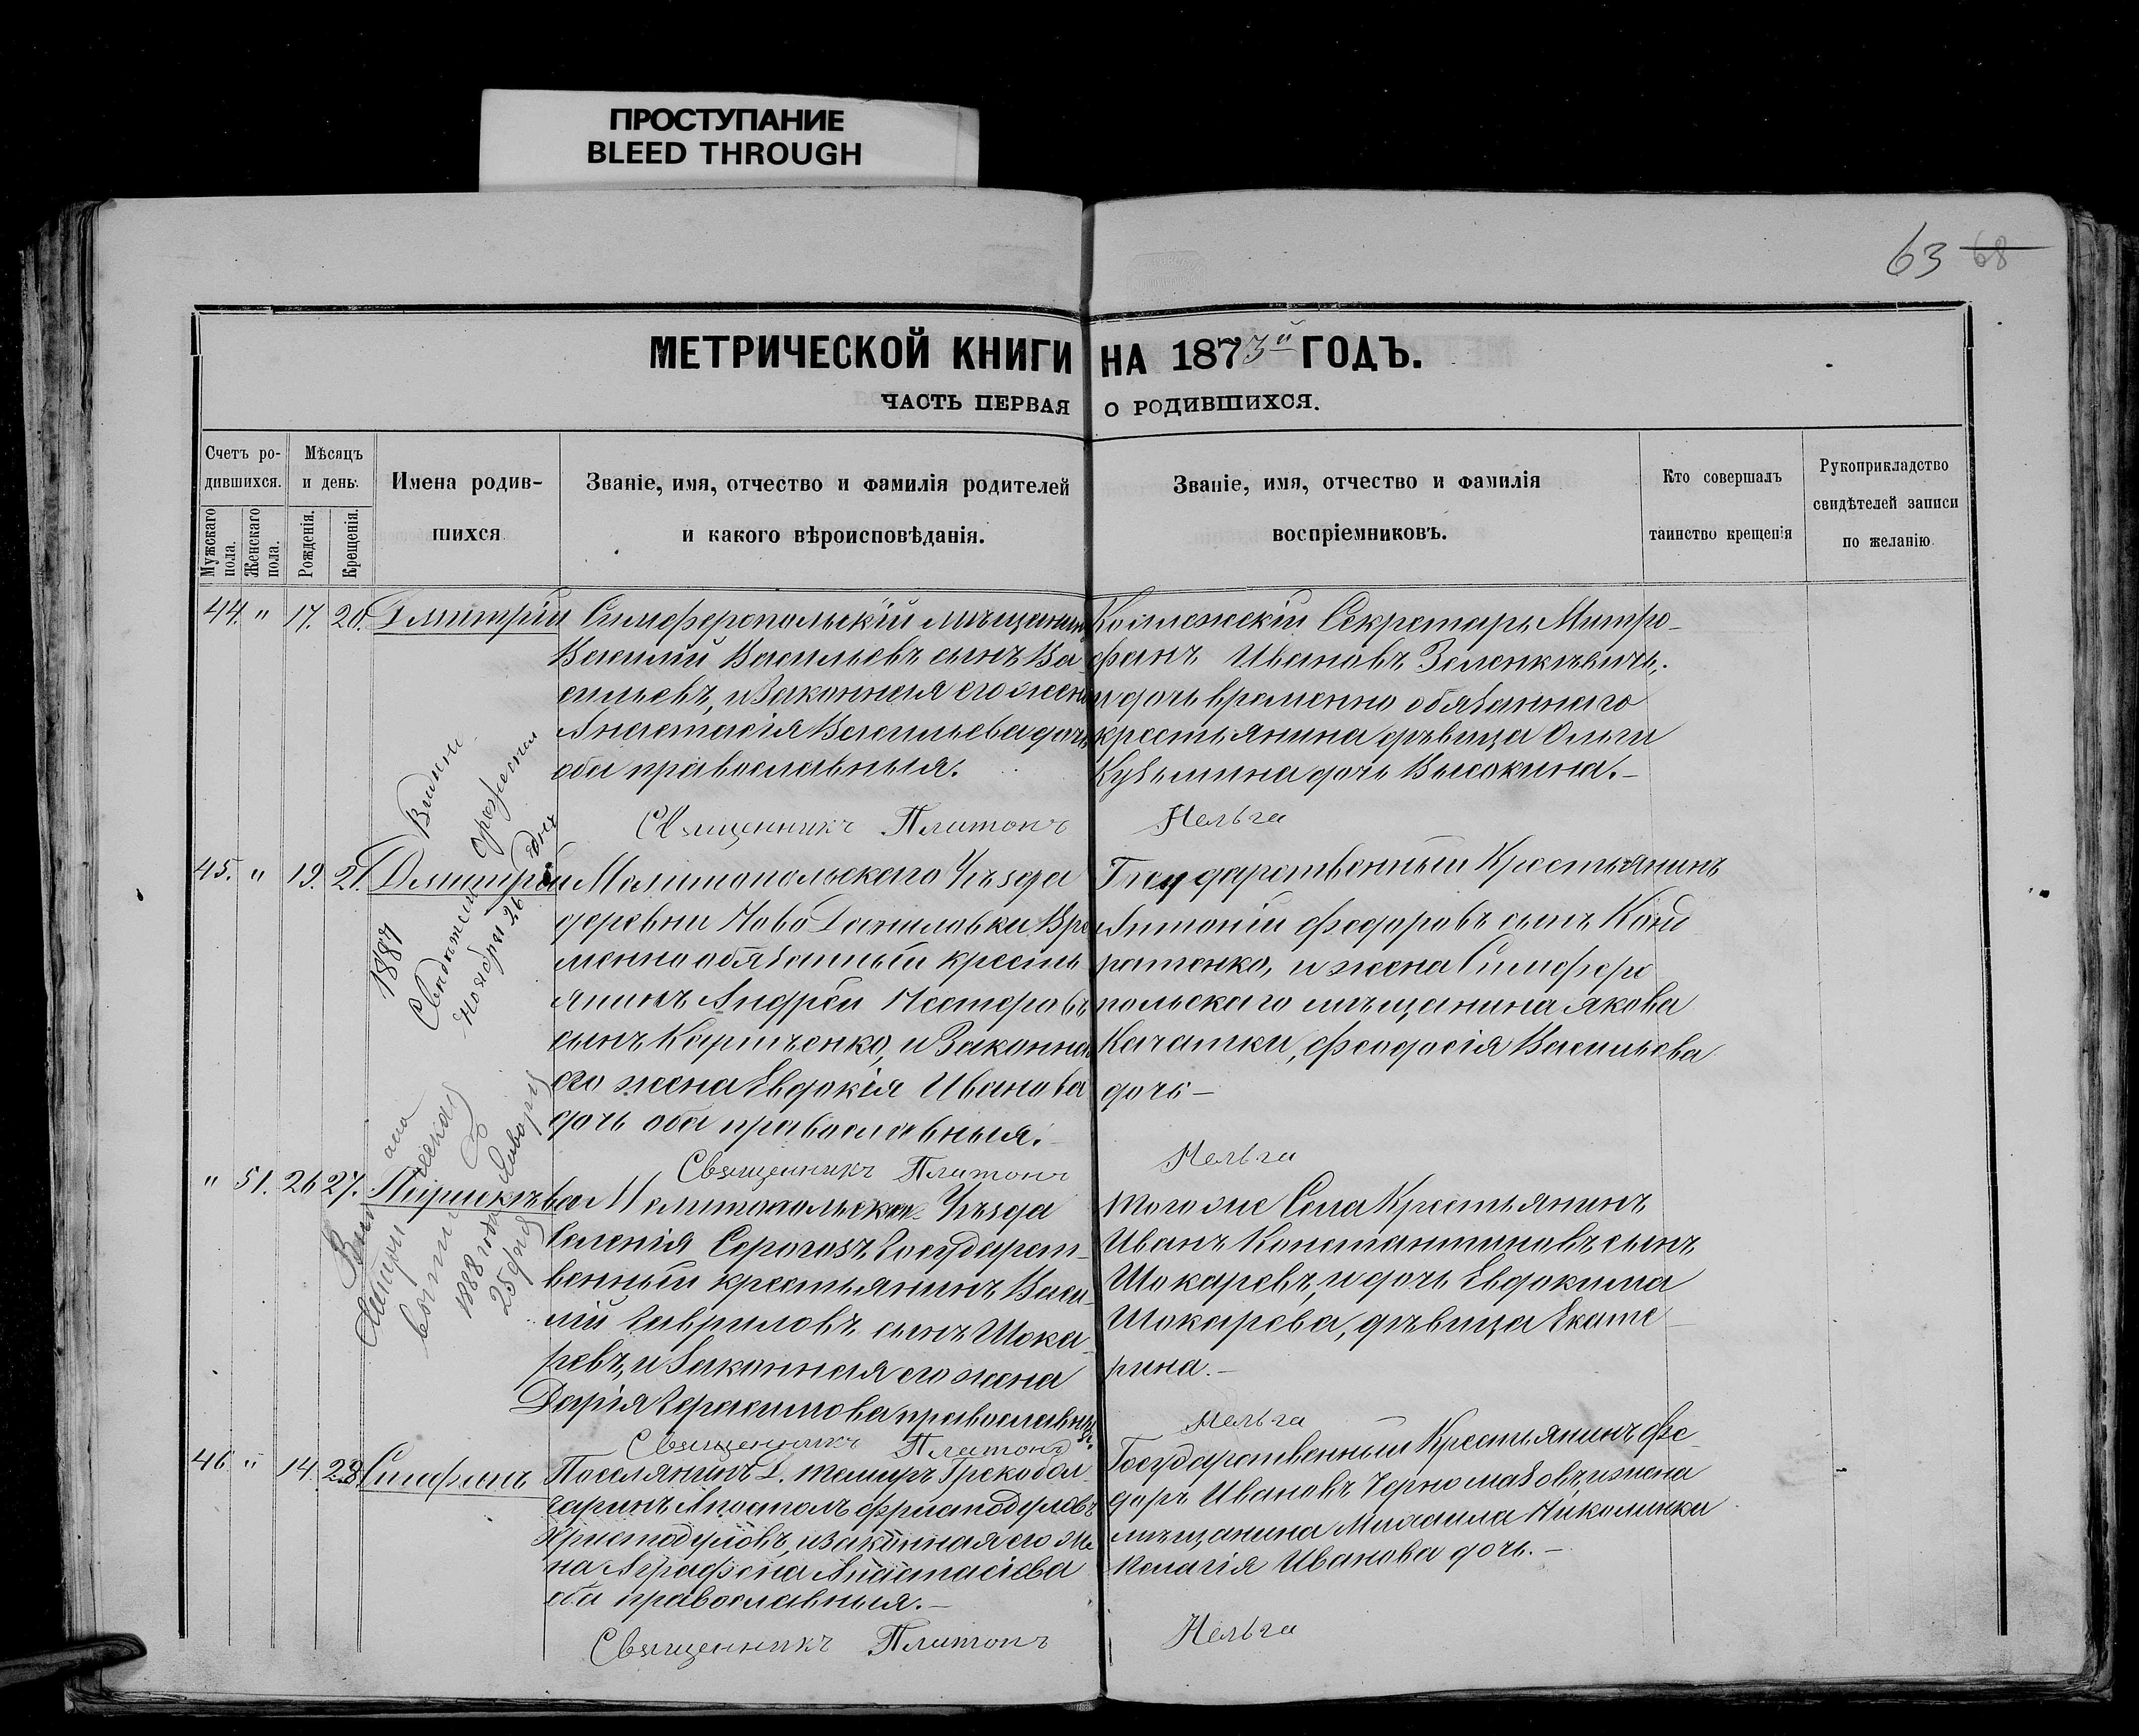 ПРОСТУПАНИЕ
BLEED THROUGH
63 68
МЕТРИЧЕСКОЙ КНИГИ НА 1873й ГОДЪ.
ЧАСТЬ ПЕРВАЯ О РОДИВШИХСЯ.
Счетъ ро-
дившихся.
Мужскаго пола.
Женскаго пола.
Мѣсяцъ
и день.
Рожденія.
Крещенія.
Имена родив-
шихся
Званіе, имя, отчество и фамилія родителей
и какого вѣроисповѣданія.
Званіе, имя, отчество и фамилія
воспріемниковъ.
Кто совершалъ
таинство крещенія
Рукоприкладство
свидѣтелей записи
по желанію.
44. " 17. 20. Дмитрій
Симферопольскій мѣщанинъ
Василій Васильевъ сынъ Ва
сильевъ, и законная его жена
Анастасія Васильева дочь
оба православныя.
Священникъ Платонъ
Коллежскій Секретарь Митро-
фанъ Ивановъ Зеленкевичъ,
и дочь временно обязаннаго
крестьянина дѣвица Ольга
Кузьмина дочь Высокина.-
Нельга
45. " 19. 21. Дмитрій
1887
Ноября 26 дня
Мелитопольскаго Уѣзда
деревни Ново Даниловки Вре
менно обязанный кресть
янинъ Андрей Нестеровъ
сынъ Карпченко, и Законная
его жена Евдокія Иванова
дочь оба православныя.
Священникъ Платонъ
Государственный Крестьянинъ
Антоній Федоровъ сынъ Конд
ратенко, и жена Симферо
польскаго мѣщанина Якова
Качатки, Феодосія Васильева
дочь -
Нельга
" 51. 26 27. Параскѣва
1888 года
25 дня
Мелитопольскаго Уѣзда
селенія Серогозъ Государст-
венный крестьянинъ Васи-
лій Гавриловъ сынъ Шока-
ревъ, и Законная его жена
Дарія Герасимова православныя.
Священникъ Платонъ
того же Села Крестьянинъ
Иванъ Константиновъ сынъ
Шокаревъ, и дочь Евдокима
Шокарева, дѣвица Екате-
рина.-
Нельга
46. " 14. 28. Стефанъ
Поселянинъ д. Темиръ Грекобол-
гаринъ Апостолъ
Христодуловъ, и законная его же
на Аграфена Анастасіева
оба православныя.-
Священникъ Платонъ
Государственный Крестьянинъ Фе-
доръ Ивановъ Черномазовъ, и жена
мѣщанина Михаила Николинка
Пелагія Иванова дочь.-
Нельга